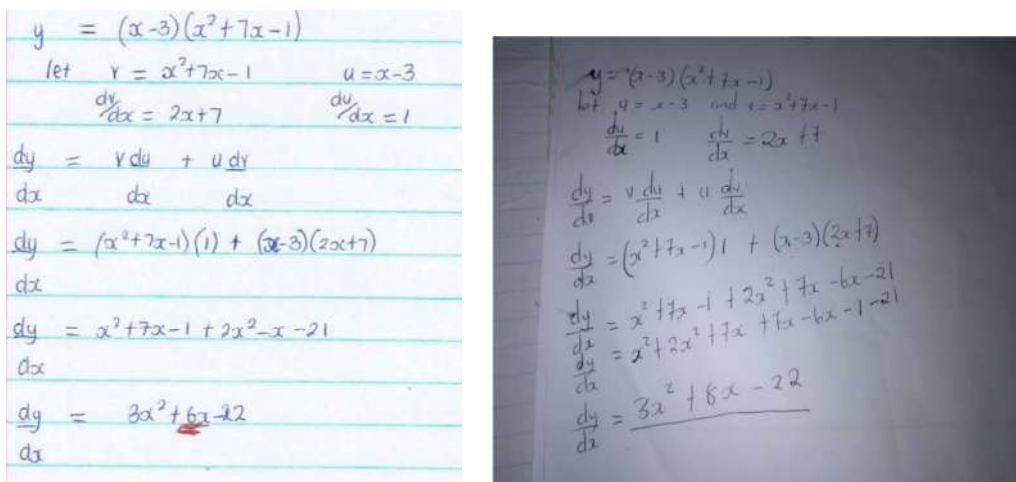 y = (x-3)(x²+7x-1)
let v = x²+7x-1 u=x-3
dv/dx = 2x+7 du/dx = 1
dy/dx = v du/dx + u dv/dx
dy/dx = (x²+7x-1)(1) + (x-3)(2x+7)
dy/dx = x²+7x-1 + 2x²-x-21
dy/dx = 3x²+6x-22
y = (x-3)(x²+7x-1)
let u = x-3 and v = x²+7x-1
du/dx = 1 dv/dx = 2x+7
dy/dx = v du/dx + u dv/dx
dy/dx = (x²+7x-1)1 + (x-3)(2x+7)
dy/dx = x²+7x-1+2x²+7x-6x-21
dy/dx = x²+2x²+7x+7x-6x-1-21
dy/dx = 3x²+8x-22